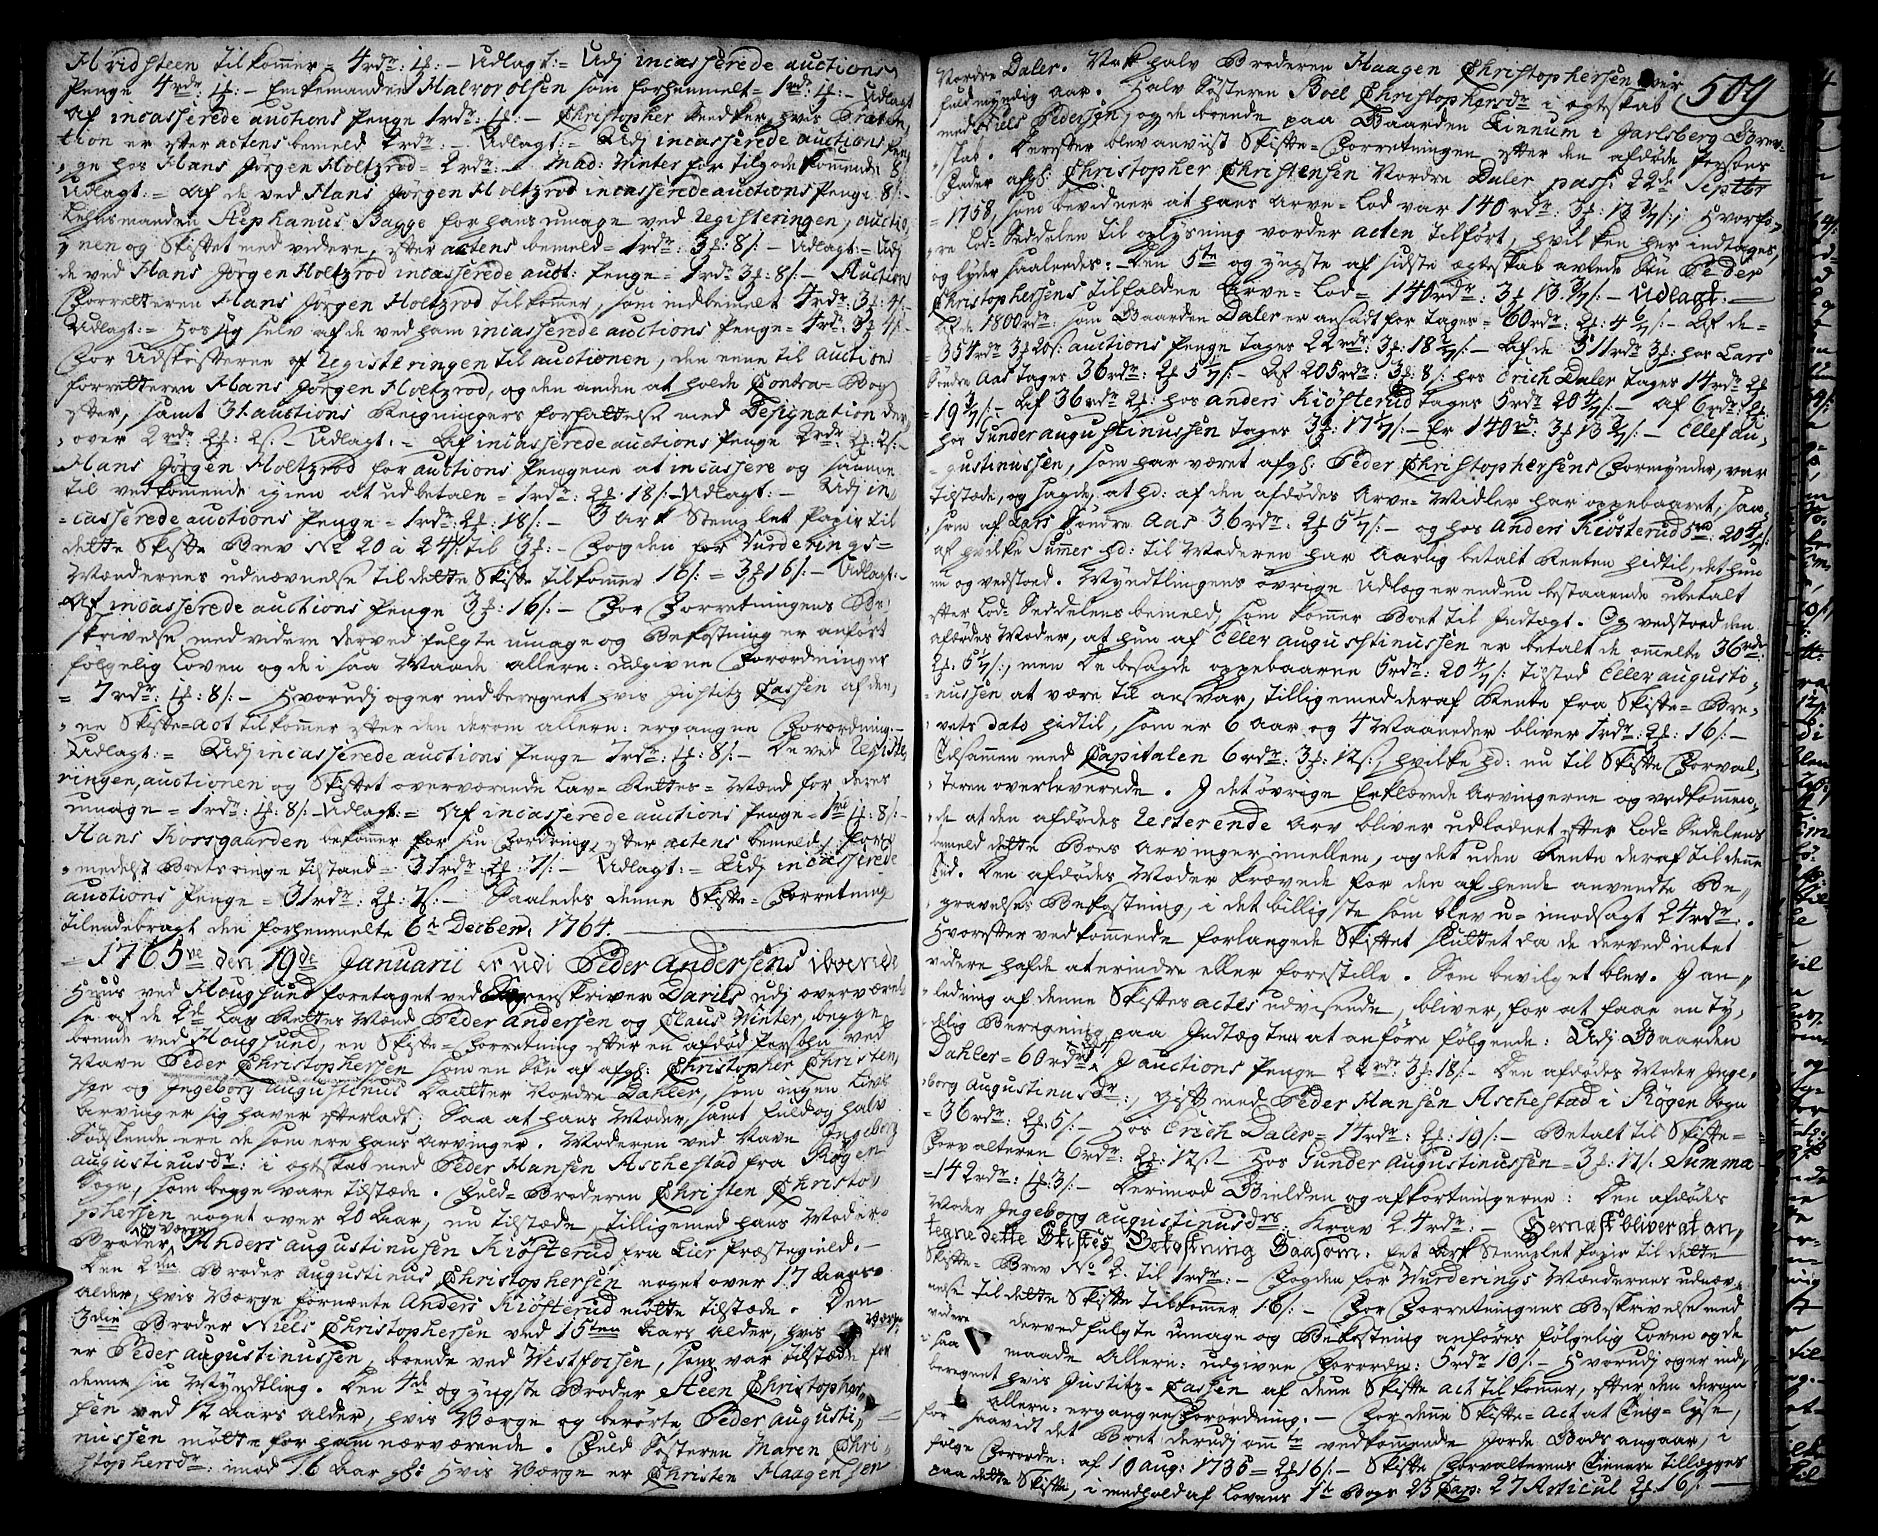 Hridsteen tilkommer = 4rdr: 1f: – Udlagt: = Udj incasserede auctions
Penge 4rdr: 1f: – Enkemanden Halvor olsen som forhenmelt = 1rdr: 1f: – Udlagt
Af incasserede auctions Penge 1rdr: 1f: – Christopher hvis Præten,
tion er efter actens bemeld 2rdr: – Udlagt: = Udj incasserede auctions pen,
ge hos Hans Jørgen Holtzrod = 2rdr: – Mad: Winter før tilgode kommende 8/:
Udlagt: = Af de ved Hans Jørgen Holtzrod incasserede auctions Penge 8/: –
Lehnsmanden Stephanus Bagge for hans umage ved Registeringen, auctio,
nen og Skiftet med videre, efter actens bemeld = 1rdr: 3f: 8/: – Udlagt: = Udj
de ved Hans Jørgen Holtzrod incasserede auct: Penge = 1rdr: 3f: 8/: – Auctions
Forretteren Hans Jørgen Holtzrod tilkommer, som indbemelt 4rdr: 3f: 4/:
Udlagt: = Hos sig selv af de ved ham incasserede auctions Penge = 4rdr: 3f 4/: –
For Udskrifterne af Registeringen til auctionen, den eene til auctions
forretteren Hans Jørgen Holtzrod, og den anden at holde Contra = Bog
efter, samt 3t auctions Regningers forfattelse med Designation der,
over 2rdr: 2f: 2/: – Udlagt: = Af incasserede auctions Penge 2rdr: 2f: 2/: –
Hans Jørgen Holtzrod for auctions Pengene at incassere og samme
til vedkommende igien at udbetale = 1rdr: 2f: 18/: – Udlagt: – Udj in,
casserede auctions Penge = 1rdr: 2f: 18/: – 3 Ark Stemplet Papir til
dette Skifte Brev No 20 à 24/: til 3f: – Fogden for Vurderings =
Mændernes udnævnelse til dette Skifte tilkommer 16/: = 3f 16/: – Udlagt: –
Af incasserede auctions Penge 3f: 16/: – For Forretningens Be,
skrivelse med videre derved fulgte umage og Bekostning er anført
følgelig Loven og de i saa Maade allern: udgivne Forordninger
= 7rdr: 1f: 8/: – Hvorudj og er indberegnet hvis Justitz Cassen af den,
ne Skifte = Act tilkommer efter den derom allern: ergangne Forordning. –
Udlagt: = Udj incasserede auctions Penge 7rdr: 1f: 8/: – De ved Registe,
ringen, auctionen og Skiftet overværende Lav = Rettes = Mænd for deres
umage = 1rdr: 1f: 8/: – Udlagt: = Af incasserede auctions Penge = 1rd 1f: 8/: –
Hans Korsgaarden bekommer for sin Fordring, efter actens bemeld, for,
medelst Boets ringe tilstand = 31rdr: 2f: 7/: – Udlagt: = Udj incasserede
auctions Penge = 31rdr: 2f: 7/: – Saaledes denne Skifte = Forretning
tilendebragt den forhenmelte 6te Decber: 1764.
1765ve den 19de Januarii er udi Peder Andersens iboende
Huus ved Hougsund foretaget ved Sorenskriver Daries udj overværel,
se af de 2de Lav Rettes Mænd Peder Andersen og Claus Winter, begge
boende ved Hougsund, en Skifte = Forretning efter en afdød Person ved
Navn Peder Christophersen som en Søn af afg: Christopher Christen,
sen og Ingeborg Augustinus Daatter Nordre Dahler, som ingen Livs
Arvinger sig haver efterladt: Saa at hans Moder, samt fuld og halv
Sødskende ere de som ere hans Arvinger. Moderen ved Navn Ingeborg
Augustinusdr: i ægteskab med Peder Hansen Aschestad fra Røgen
Sogn, som begge vare tilstæde. Fuld = Broderen Christen Christo,
phersen noget over 20 Aar, nu tilstæde, tilligemed hans Moder =
Broder og værge Anders Augustinusen Kiøsterud fra Lier Præstegield. –
Den 2den Broder Augustinus Christophersen noget over 17 Aars
alder, hvis Værge fornævnte Anders Kiøsterud mødte tilstæde. Den
3die Broder Niels Christophersen ved 15ten Aars alder, hvis Værge
er Peder Augustinussen, boende ved Westfossen, som var tilstæde for
denne sin Myndtling. Den 4de og yngste Broder Steen Christopher,
sen ved 12 Aars alder, hvis Værge og berørte Peder Augusti,
nussen mødte for ham nærværende. Fuld Søsteren Maren Chri,
stophersdr: imod 16 Aar gl: hvis Værge er Christen Haagensen
509
Nordre Daler. Nok halv Broderen Haagen Christophersen over
fuldmyndig aar. Halv Søsteren Boel Christophersdr i ægteskab
med Niels Pedersen, og de boende paa Gaarden Linnum i Jarlsberg Grev,
skab. Derefter blev anviist Skifte = Forretningen efter den afdøde Persons
Fader afg: Christopher Christensen Nordre Daler pass: 22de Septbr
= 1758, som beviidner at hans Arve = Lod var 140rdr: 3f: 13 3/7/:; Hvorfo,
re Lod = Seddelen til oplysning vorder acten tilført, hvilken her indtages,
og lyder saaledes: – Den 5te og yngste af sidste ægteskab avlede Søn Peder
Christophersens tilfaldne Arve = Lod = 140rdr: 3f 13 3/7/: – Udlagt: –
Af de 1800rdr: som Gaarden Daler er ansadt for tages = 60rdr: 2f: 4 6/7/: – Af de =
= 354rdr 3f 20/: auctions Penge tages 22rdr: 3f: 18 2/7/: – Af de 311rdr 3f: hos Lars
Søndre Aas tages 36rdr: 2f 5 1/7/: – Af 205rdr: 3f: 8/: hos Erich Daler tages 14rdr: 2f
= 19 3/7/: – Af 36rdr 2f: hos Anders Kiøsterud tages 5rdr 20 4/7/: – af 6rdr: 2f:
hos Gunder Augustinussen tages 3f: 17 1/7/: – Er 140rdr: 3f 13 3/7/: – Ellef au,
gustinussen, som har været afg: Peder Christophersens Formynder, var
tilstæde, og sagde, at hd: af den afdødes Arve = Midler har oppebaaret, saa,
som af Lars Søndre Aas 36rdr: 2f 5 1/7/: – og hos Anders Kiøsterud 5rd: 20 4/7/:
af hvilke Sumer hd: til Moderen har Aarlig betalt Renten hidtil, det hun
nu og vedstoed. Myndtlingens øvrige Udlæg er endnu bestaaende ubetalt
efter Lod = Seddelens bemeld, som kommer Boet til Indtægt. Og vedstoed den
afdødes Moder, at hun af Ellef Augustinussen er betalt de ommelte 36rdr:
2f: 5 1/7/:, men De besagde oppebaarne 5rdr: 20 4/7/: tilstod Ellef augusti,
nussen at være til ansvar, tilligemed deraf Rente fra Skifte = Bre,
vets dato hidtil, som er 6 Aar og 4 Maaneder bliver 1rdr: 2f: 16/: –
Tilsammen med Capitalen 6rdr: 3f: 12/:, hvilke hd: nu til Skifte Forval,
teren overleverede. I det øvrige Erklærede Arvingerne og vedkommen,
de at den afdødes resterende Arv bliver udlodnet efter Lod = Sedelens
bemeld dette Boes Arvinger imellem, og det uden Rente deraf til denne
tid. Den afdødes Moder krævede for den af hende anvendte Be,
gravelse = Bekostning, i det billigste som blev u = imodsagt 24rdr: .
Hvorefter vedkommende forlangede Skiftet sluttet da de derved intet
videre hafde at erindre eller forestille. Som bevilget blev. I an,
ledning af denne Skiftes actes udvisende, bliver, for at faae en ty,
delig Beregning paa Indtægten at anføre følgende: Udj Gaarden
Dahler = 60rdr I auctions Penge 22rdr 3f: 18/: – Den afdødes Moder Inge,
borg Augustinusdr:, gift med Peder Hansen Aschestad i Røgen Sogn
= 36rdr: 2f: 5/: – Hos Erich Daler = 14rdr: 2f: 19/: – Betalt til Skifte =
Forvalteren 6rdr: 3f: 12/: – Hos Gunder Augustinussen = 3f: 17/: Summa
= 142rdr: 1f: 3/: – Derimod Gielden og afkortningerne: Den afdødes
Moder Ingeborg Augustinusdrs: Krav 24rdr: – Hernæst bliver at an,
tegne dette Skiftes Bekostning Saasom: Eet Ark Stemplet Papir til dette
Skifte = Brev No 2. til 1rdr: – Fogden for Wurderings Mændernes udnæv,
nelse til dette Skifte tilkommer 16/: – For Forretningens Beskrivelse med
videre derved fulgte umage og Bekostning anføres følgelig Loven og de
i saa maade Allern: udgivne Forordn: 5rdr 10/: – Hvorudj og er ind,
beregnet hvis Justitz = Cassen af denne Skifte act tilkommer, efter den derom
allern: ergangne Forordning. – For denne Skifte = Act at Ting = lyse,
for saavidt det Boet derudj vedkommende Jorde Gods angaar, i
følge Forordn: af 10 aug: 1735 = 2f 16/: – Skifte Forvalterens Tienere tillægges
paa dette Skifte, i medhold af Lovens 5te Bogs 23 Cap: 27 Articul 2f: 16/: –